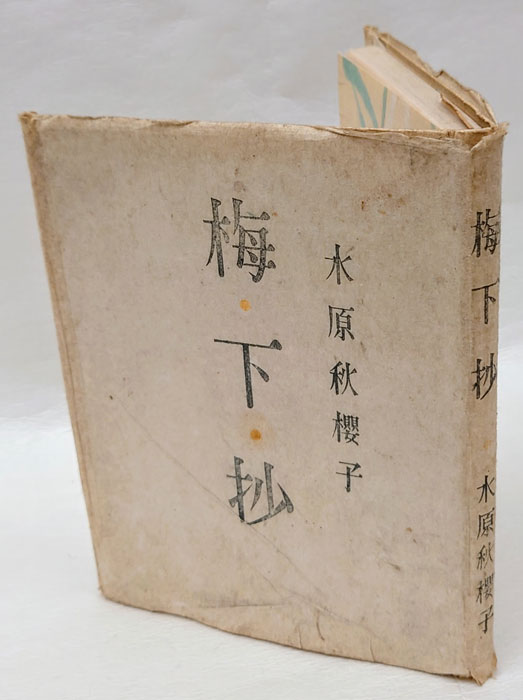 水原秋櫻子
梅・下・抄
梅下抄 水原秋櫻子